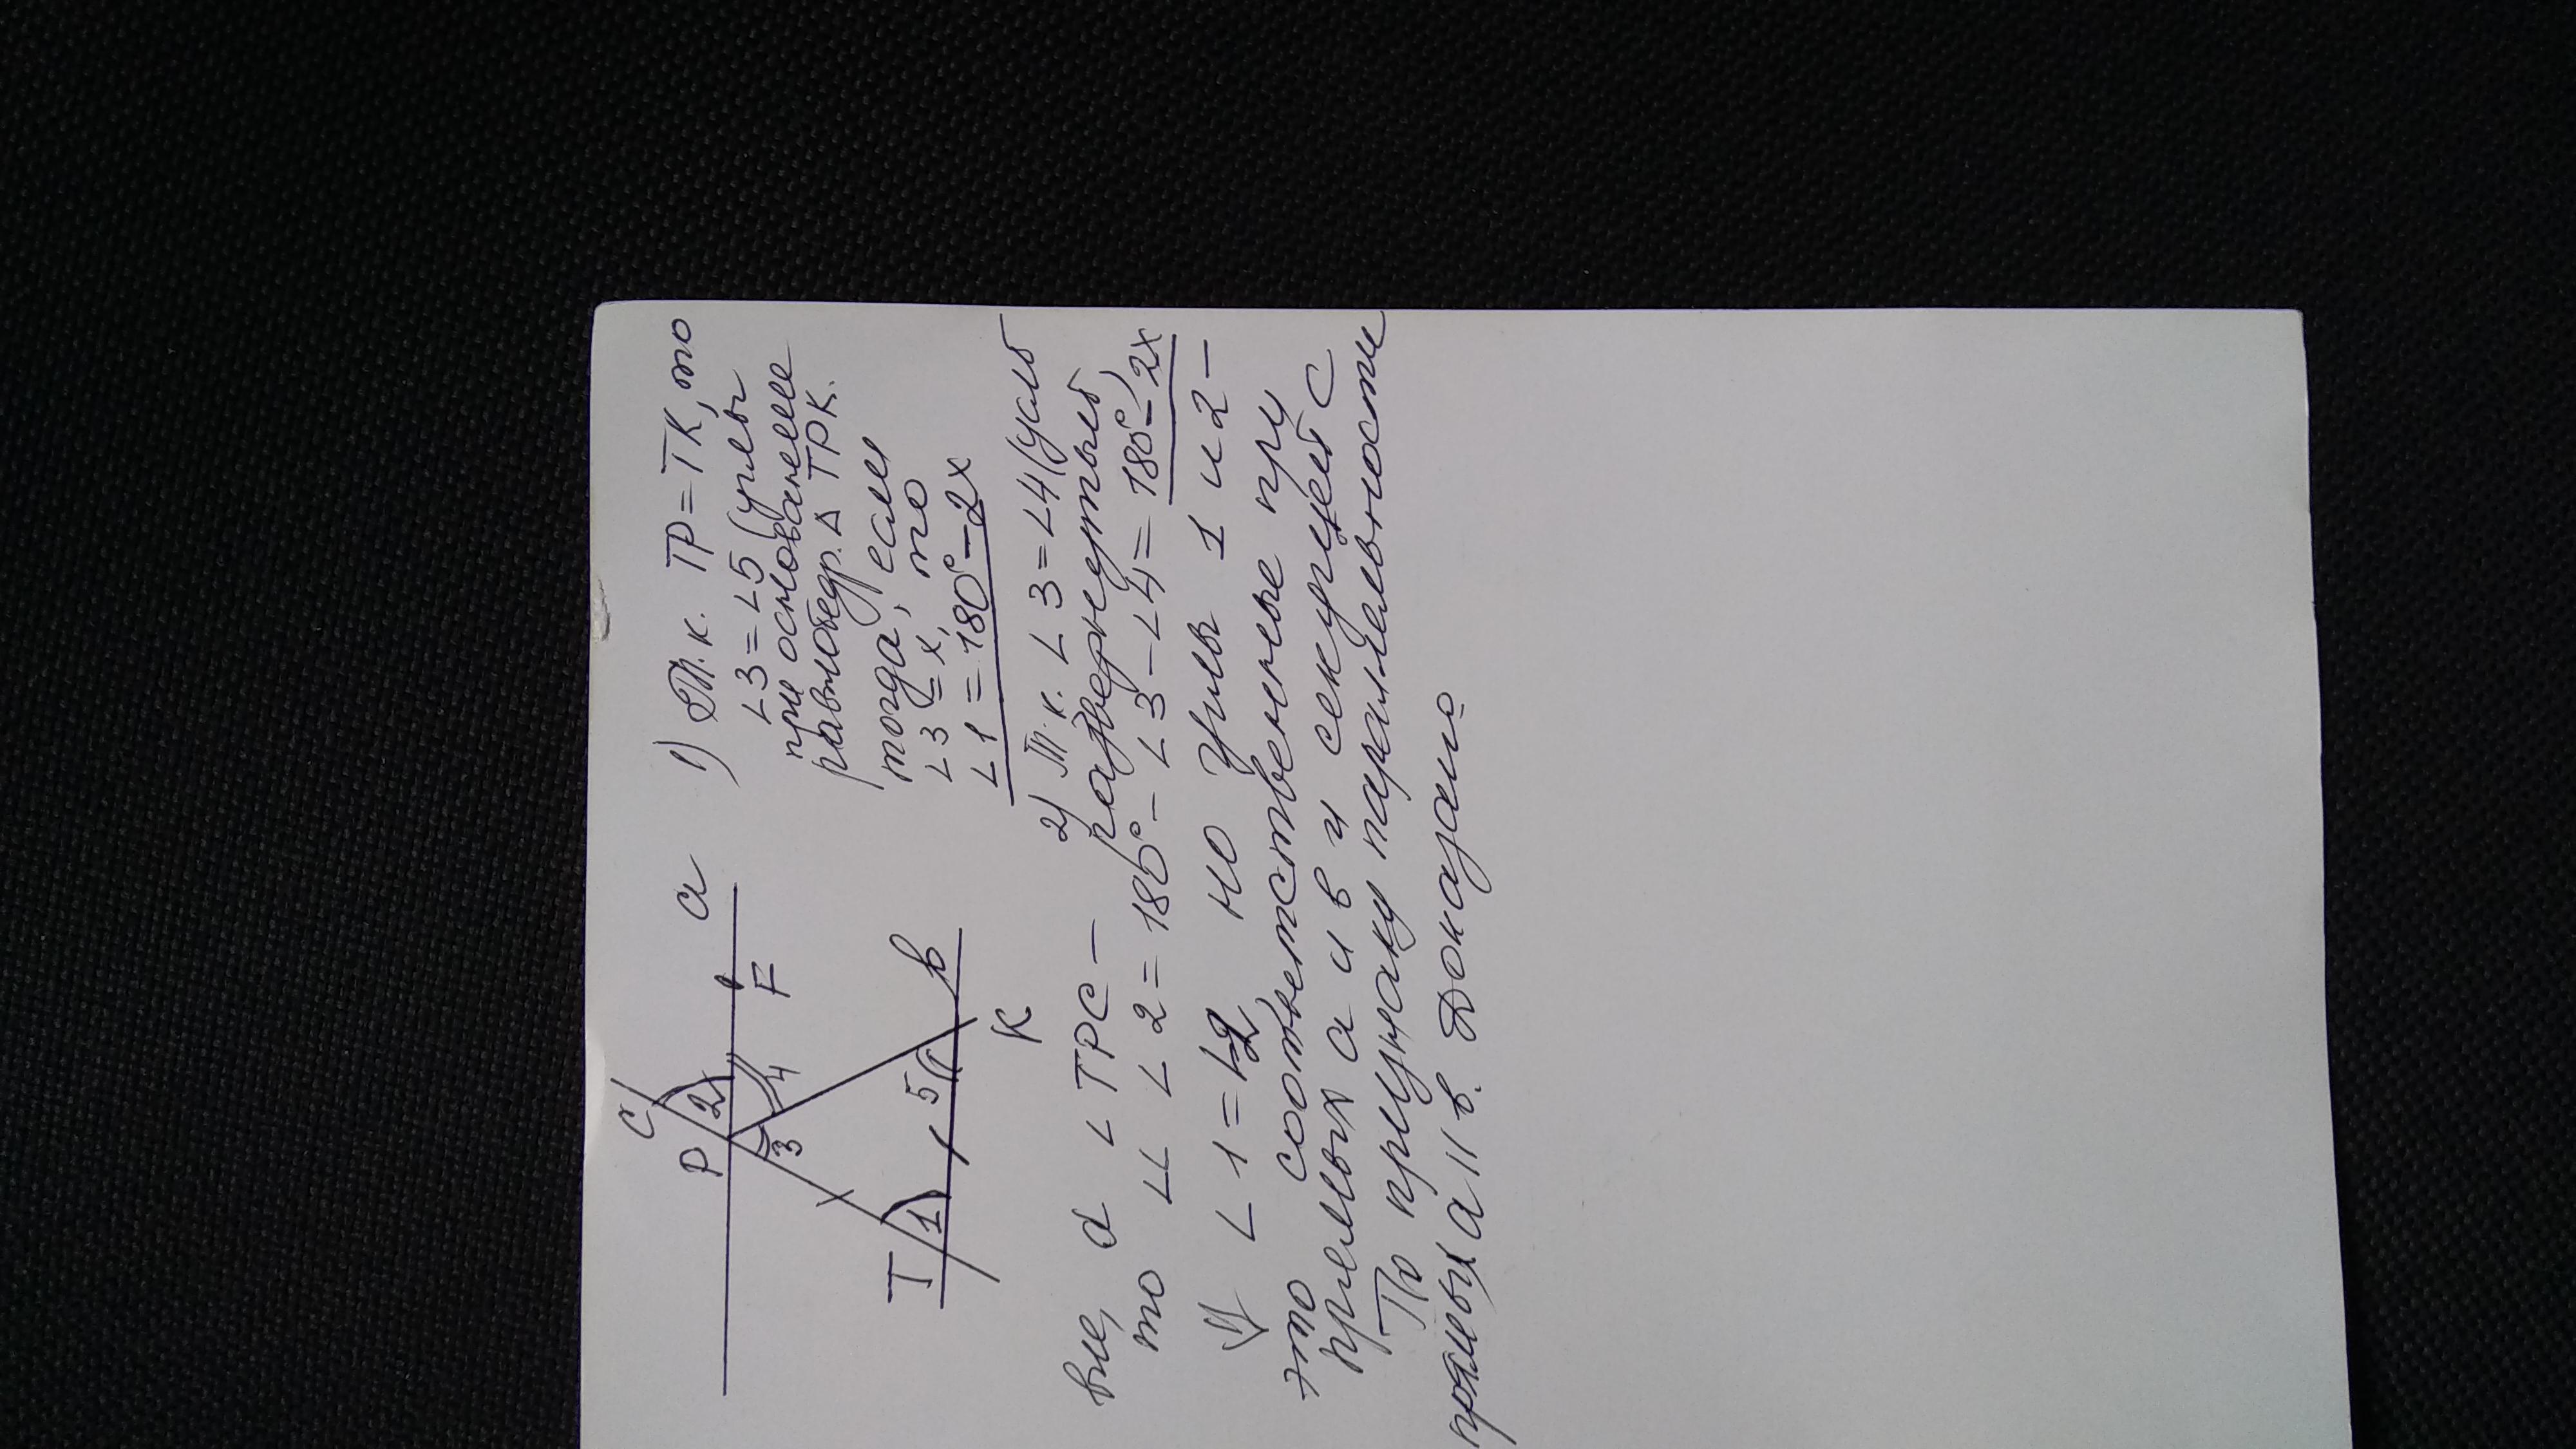 C
P 2 a
3 4 F
T 1 5 b
K
1) Т.к. TP = TK, то
∠3 = ∠5 (углы
при основание
равнобедр. Δ TPK.
тогда, если
∠3 = x, то
∠1 = 180° - 2x
2) Т.к. ∠3 = ∠4 (усло
вие, а ∠TPC - развернутый,
то ∠∠ ∠2 = 180° - ∠3 - ∠4 = 180° - 2x
⇓ ∠1 = ∠2 но углы 1 и 2 -
это соответственные при
прямых а и в и секущей с
По признаку параллельности
прямых а || в. Доказано